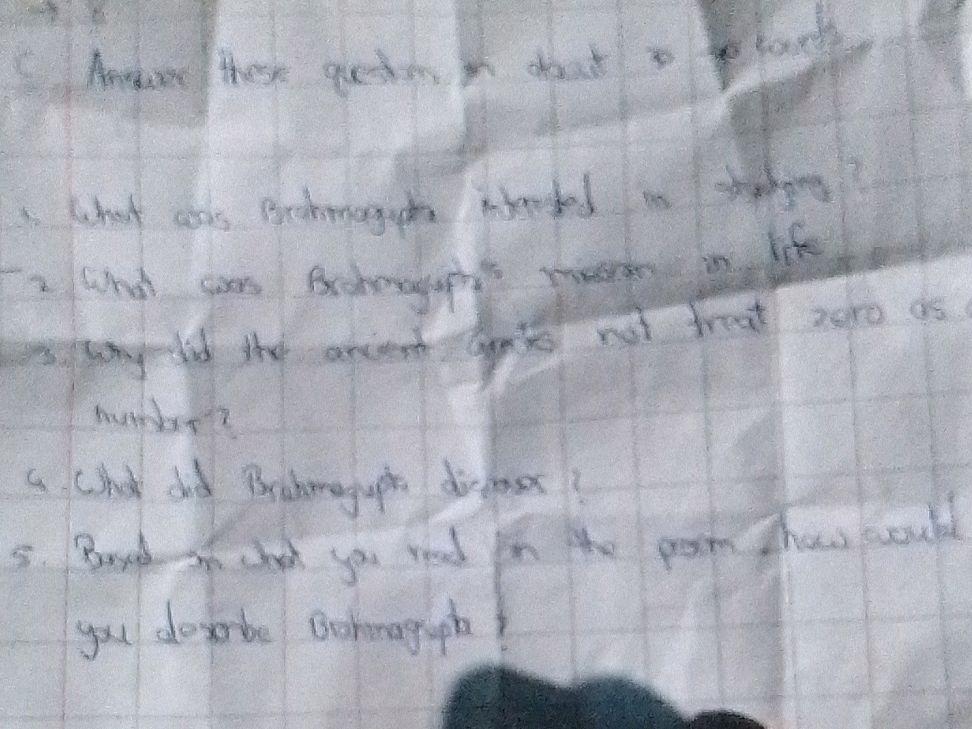 these question in about
1. What was Brahmagupta intersted in studying?
2. What was Brahmagupta's mission in life
3. Why did the ancient not treat zero as
number?
4. What did Brahmagupta discover?
5. Based on what you read in the poem, how would
you describe Brahmagupta?